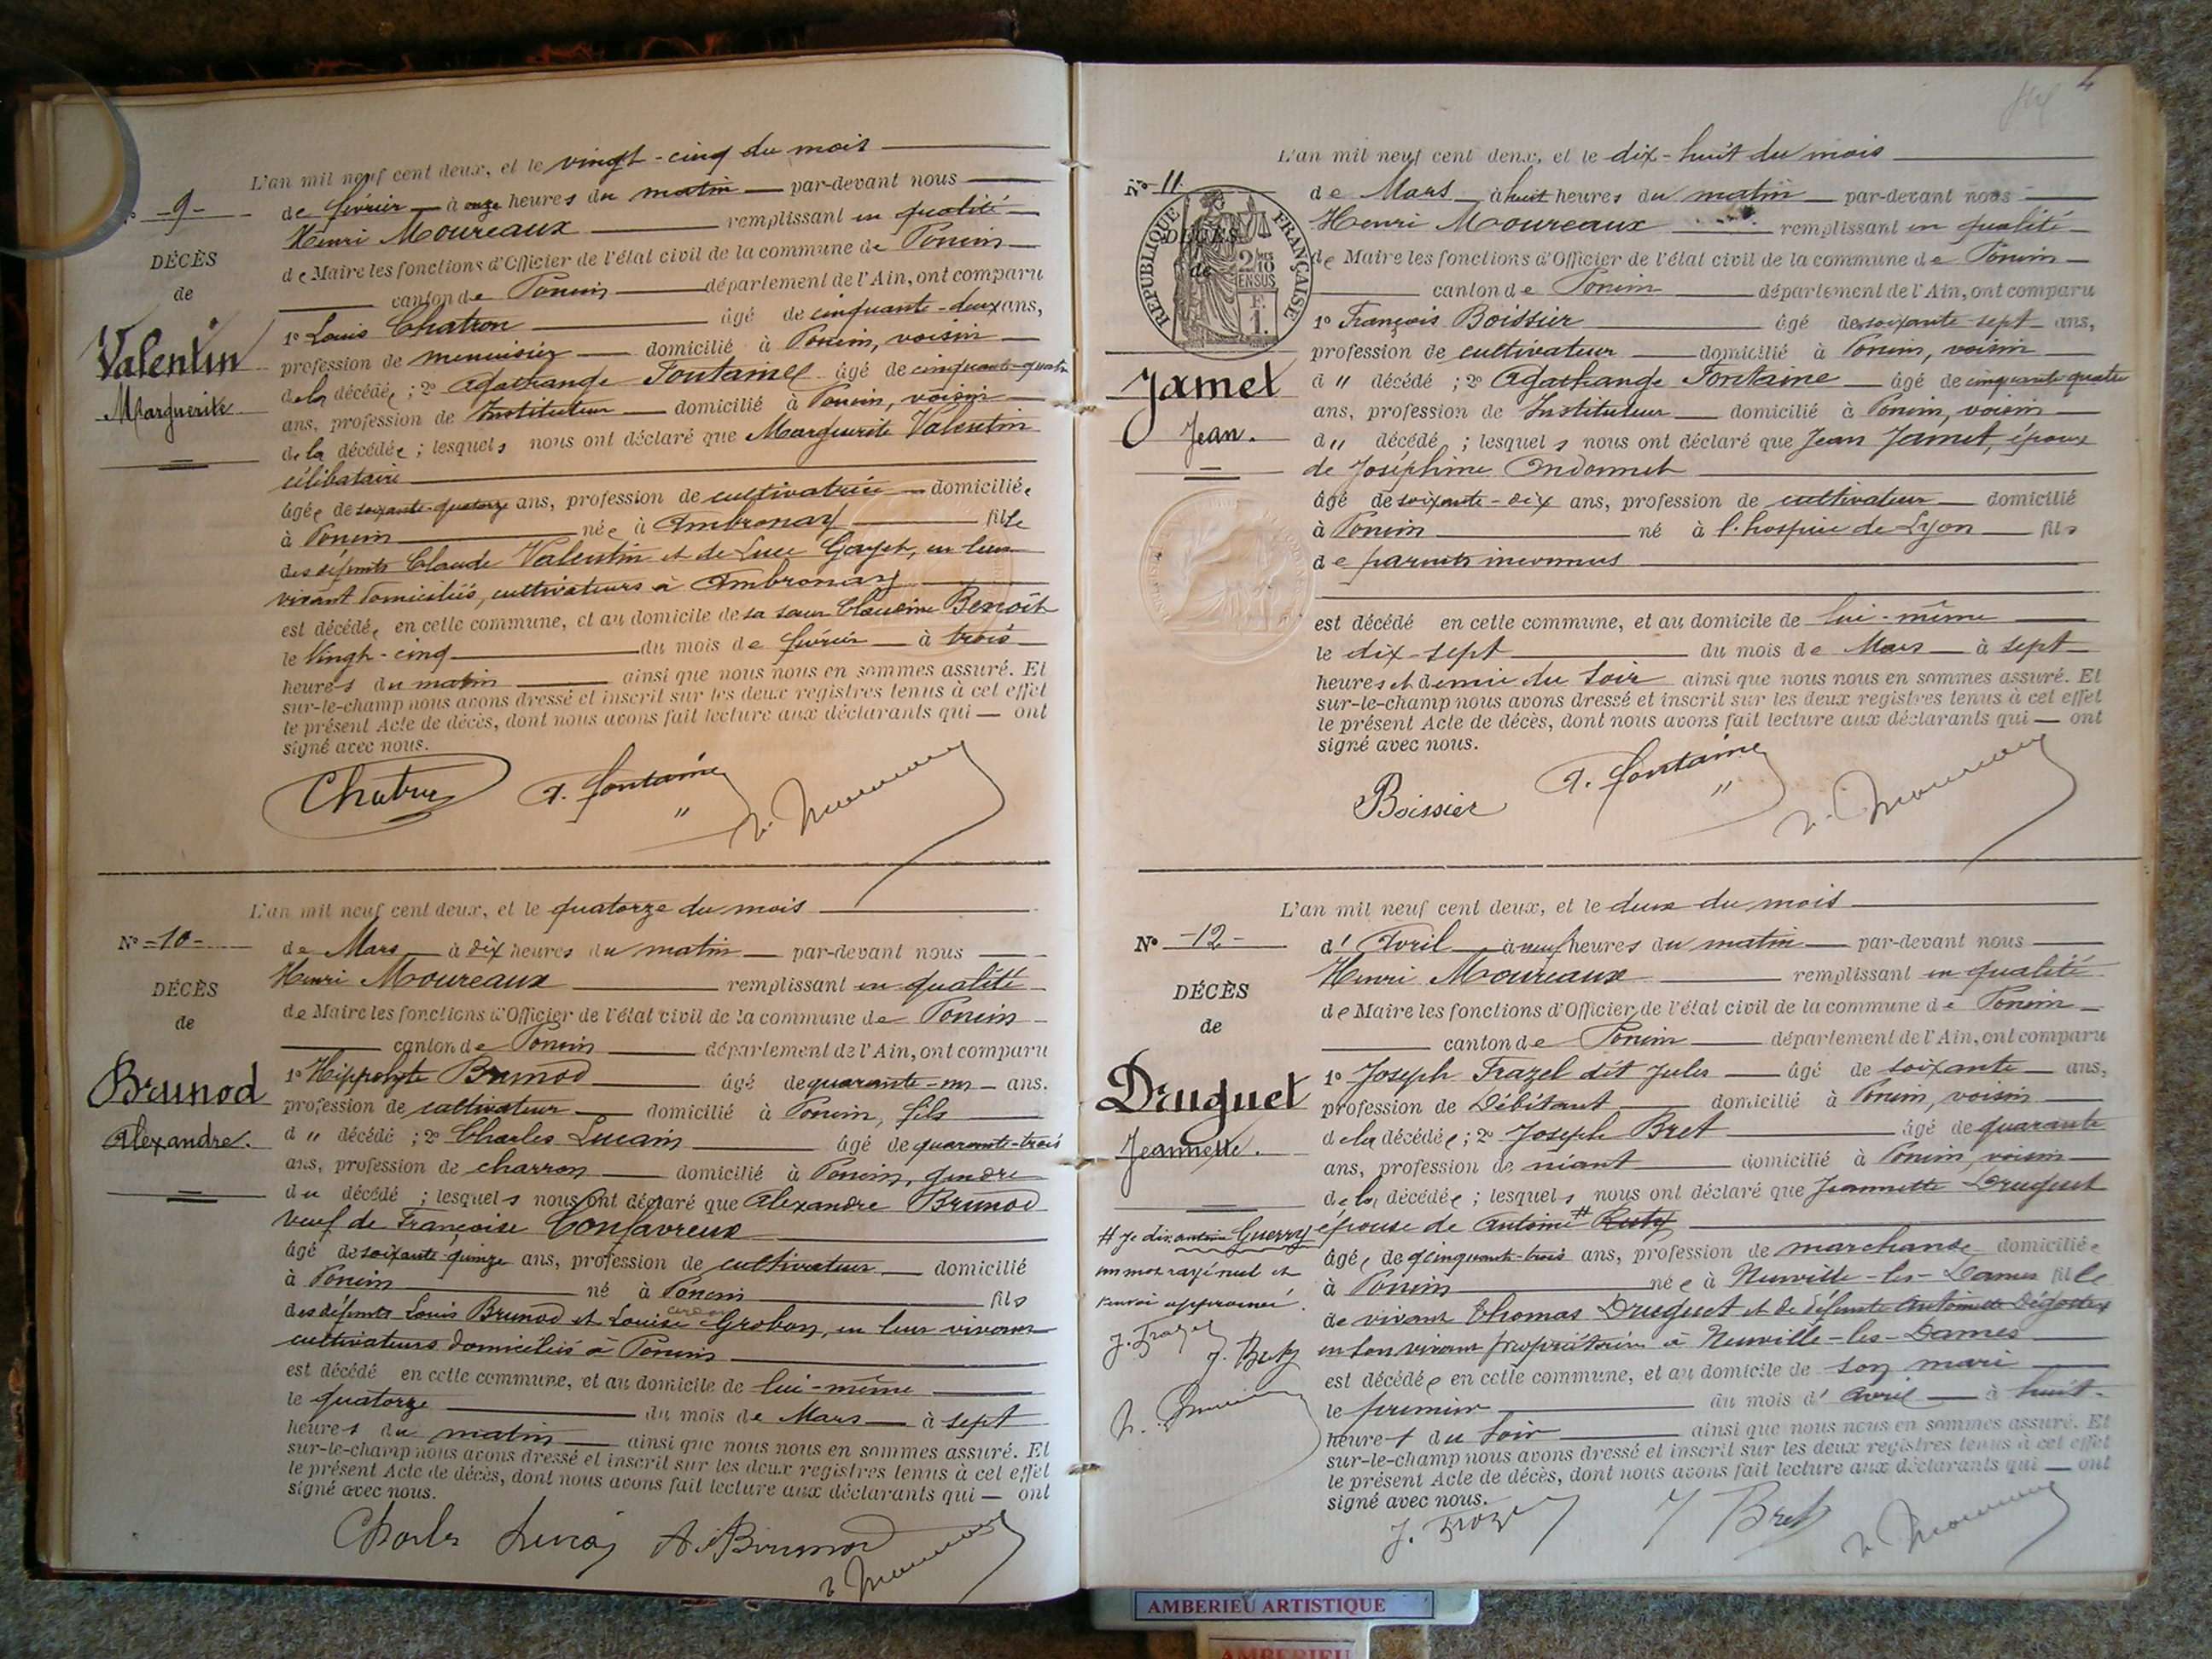 L'an mil neuf cent deux, et le vingt-cinq du mois
N° -9-
de février à onze heures du matin par-devant nous
Henri Moureaux remplissant en qualité
DÉCÈS
de Maire les fonctions d'Officier de l'état civil de la commune de Poncin
de
canton de Poncin département de l'Ain, ont comparu
1° Louis Chatron âgé de cinquante-deux ans,
Valentin
profession de menuisier domicilié à Poncin, voisin
Marguerite
de la décédée ; 2° Agathange Fontaine âgé de cinquante-quatre
ans, profession de Instituteur domicilié à Poncin, voisin
de la décédée ; lesquels nous ont déclaré que Marguerite Valentin
célibataire
âgée de soixante-quatorze ans, profession de cultivatrice domiciliée
à Poncin née à Ambronay fille
des défunts Claude Valentin et de Luce Goyet, en leur
vivant domiciliés, cultivateurs à Ambronay
est décédée en cette commune, et au domicile de sa sœur Claudine Benoît
le vingt-cinq du mois de février à trois
heures du matin ainsi que nous nous en sommes assuré. Et
sur-le-champ nous avons dressé et inscrit sur les deux registres tenus à cet effet
le présent Acte de décès, dont nous avons fait lecture aux déclarants qui — ont
signé avec nous.
Chatron A. Fontaine H. Moureaux
L'an mil neuf cent deux, et le quatorze du mois
N° -10-
de Mars à dix heures du matin par-devant nous
Henri Moureaux remplissant en qualité
DÉCÈS
de Maire les fonctions d'Officier de l'état civil de la commune de Poncin
de
canton de Poncin département de l'Ain, ont comparu
Brunod
1° Hippolyte Brunod âgé de quarante-un ans.
profession de cultivateur domicilié à Poncin, fils
Alexandre.
d " décédé ; 2° Charles Lucain âgé de quarante-trois
ans, profession de charron domicilié à Poncin, gendre
du décédé ; lesquels nous ont déclaré que Alexandre Brunod
veuf de Françoise Confavreux
âgé de soixante-quinze ans, profession de cultivateur domicilié
à Poncin né à Poncin fils
des défunts Louis Brunod et Louise Grobon, en leur vivant
cultivateurs domiciliés à Poncin
est décédé en cette commune, et au domicile de lui-même
le quatorze du mois de Mars à sept
heures du matin ainsi que nous nous en sommes assuré. Et
sur-le-champ nous avons dressé et inscrit sur les deux registres tenus à cet effet
le présent Acte de décès, dont nous avons fait lecture aux déclarants qui — ont
signé avec nous.
Charles Lucain H. Brunod
H. Moureaux
4
L'an mil neuf cent deux, et le dix-huit du mois
N° 11.
de Mars à huit heures du matin par-devant nous
Henri Moureaux remplissant en qualité
RÉPUBLIQUE FRANÇAISE
DÉCÈS
2/10 EN SUS
F. 1.
de Maire les fonctions d'Officier de l'état civil de la commune de Poncin
de
canton de Poncin département de l'Ain, ont comparu
1° François Boissier âgé de soixante-sept ans,
profession de cultivateur domicilié à Poncin, voisin
Jamet
d " décédé ; 2° Agathange Fontaine âgé de cinquante-quatre
ans, profession de Instituteur domicilié à Poncin, voisin
Jean.
d " décédé ; lesquels nous ont déclaré que Jean Jamet, époux
de Joséphine Ondonnet
âgé de soixante-dix ans, profession de cultivateur domicilié
à Poncin né à l'hospice de Lyon fils
de parents inconnus
est décédé en cette commune, et au domicile de lui-même
le dix-sept du mois de Mars à sept
heures et demie du soir ainsi que nous nous en sommes assuré. Et
sur-le-champ nous avons dressé et inscrit sur les deux registres tenus à cet effet
le présent Acte de décès, dont nous avons fait lecture aux déclarants qui — ont
signé avec nous.
Boissier A. Fontaine H. Moureaux
L'an mil neuf cent deux, et le deux du mois
N° -12-
d'Avril à neuf heures du matin par-devant nous
Henri Moureaux remplissant en qualité
DÉCÈS
de Maire les fonctions d'Officier de l'état civil de la commune de Poncin
de
canton de Poncin département de l'Ain, ont comparu
Druguet
1° Joseph Frazel dit Jules âgé de soixante ans,
profession de Débitant domicilié à Poncin, voisin
Jeannette.
de la décédée ; 2° Joseph Bret âgé de quarante
ans, profession de néant domicilié à Poncin, voisin
de la décédée ; lesquels nous ont déclaré que Jeannette Druguet
épouse de Antoine #
# Je dis antoine Guerry
un mot rayé nul et
renvoi approuvé.
J. Frazel
J. Bret
H. Moureaux
âgée de cinquante-trois ans, profession de marchande domiciliée
à Poncin née à Neuville-les-Dames fille
de vivant Thomas Druguet et de défunte Antoinette
en son vivant propriétaire à Neuville-les-Dames
est décédée en cette commune, et au domicile de son mari
le premier du mois d'avril à huit
heures du soir ainsi que nous nous en sommes assuré. Et
sur-le-champ nous avons dressé et inscrit sur les deux registres tenus à cet effet
le présent Acte de décès, dont nous avons fait lecture aux déclarants qui — ont
signé avec nous.
J. Frazel J Bret H. Moureaux
AMBERIEU ARTISTIQUE
AMBERIEU